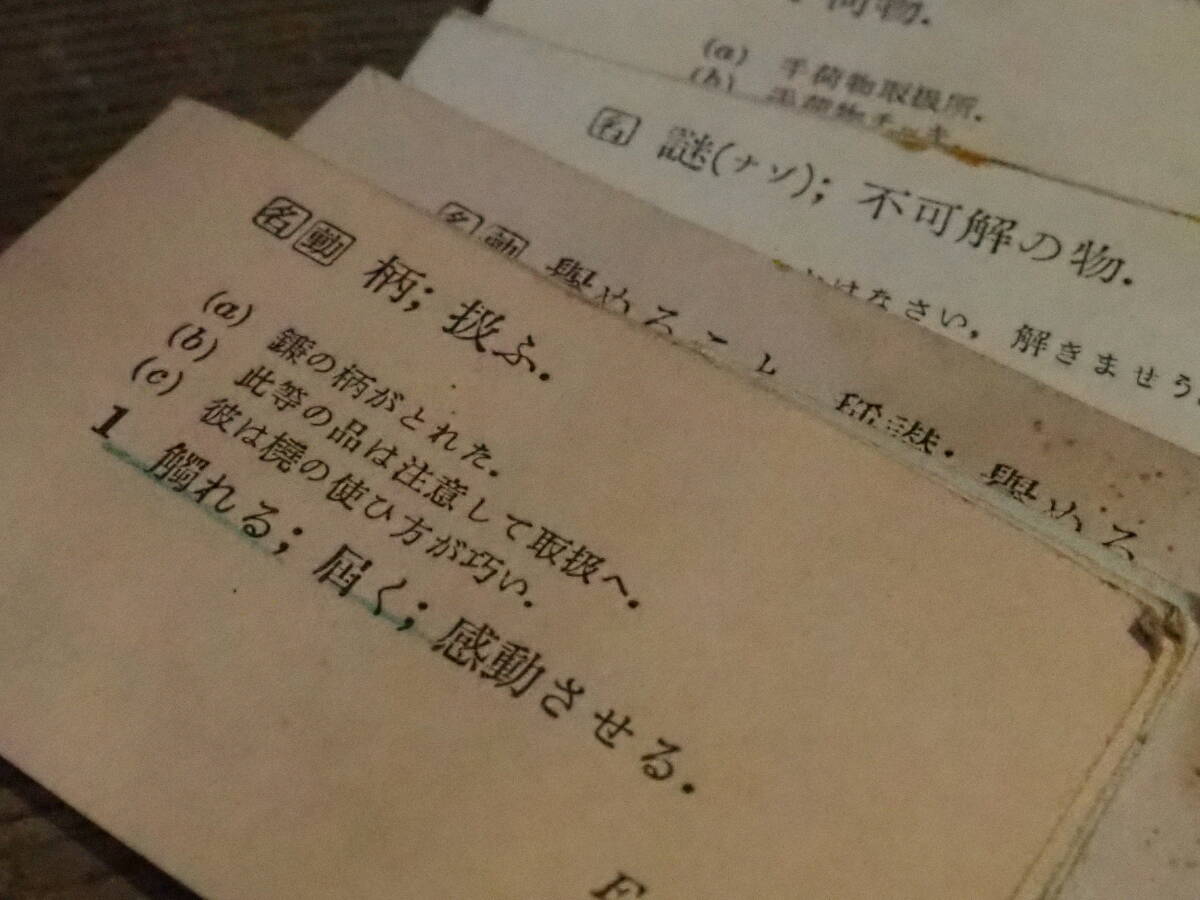 荷物.
(a) 手荷物取扱所.
(b) 手荷物チッキ
名 謎(ナゾ); 不可解の物.
はなさい, 解きませう.
名 動 與めること
與める
名 動 柄; 扱ふ.
(a) 鏃の柄がとれた.
(b) 此等の品は注意して取扱へ.
(c) 彼は橈の使ひ方が巧い.
1 觸れる; 届く; 感動させる.